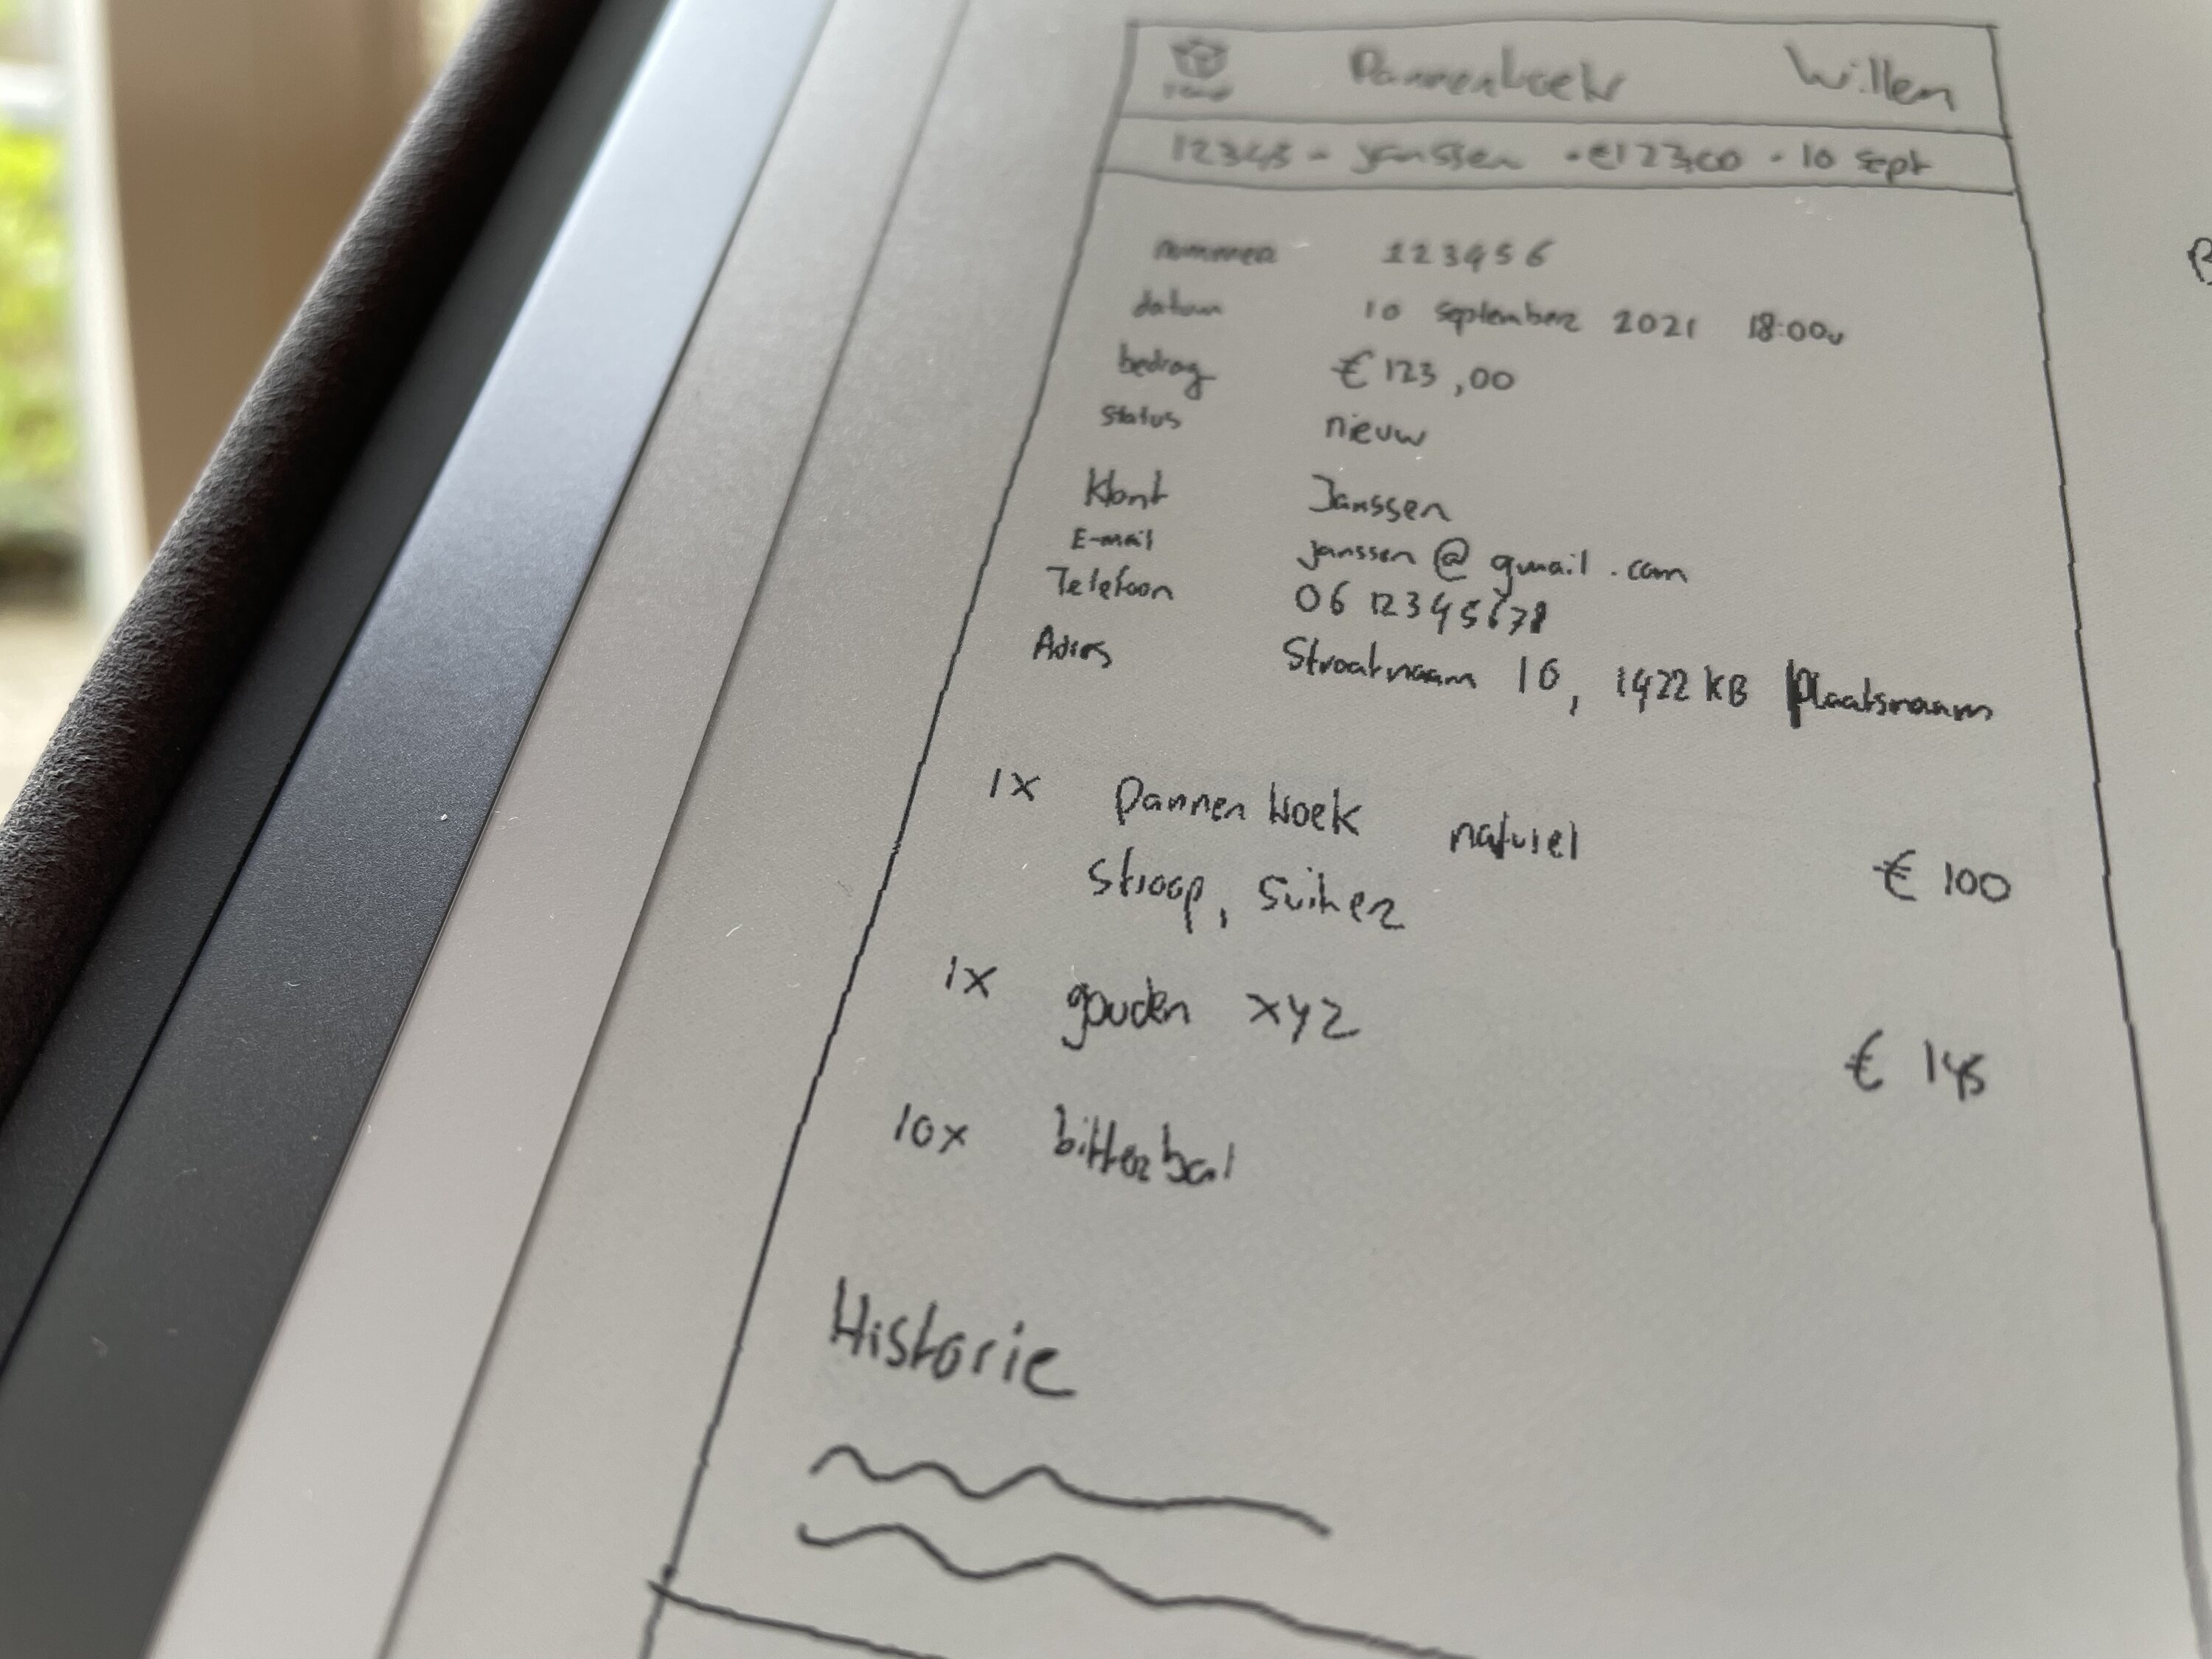 Pannenkoek Willem
12345 - Janssen - €123,00 - 10 sept
nummer 123456
datum 10 september 2021 18:00u
bedrag €123,00
status nieuw
Klant Janssen
E-mail janssen@gmail.com
Telefoon 06 12345678
Adres Straatnaam 10, 1422 KB Plaatsnaam
1x Pannenkoek naturel
stroop, suiker € 100
1x gouden xyz € 145
10x bitterbal
Historie